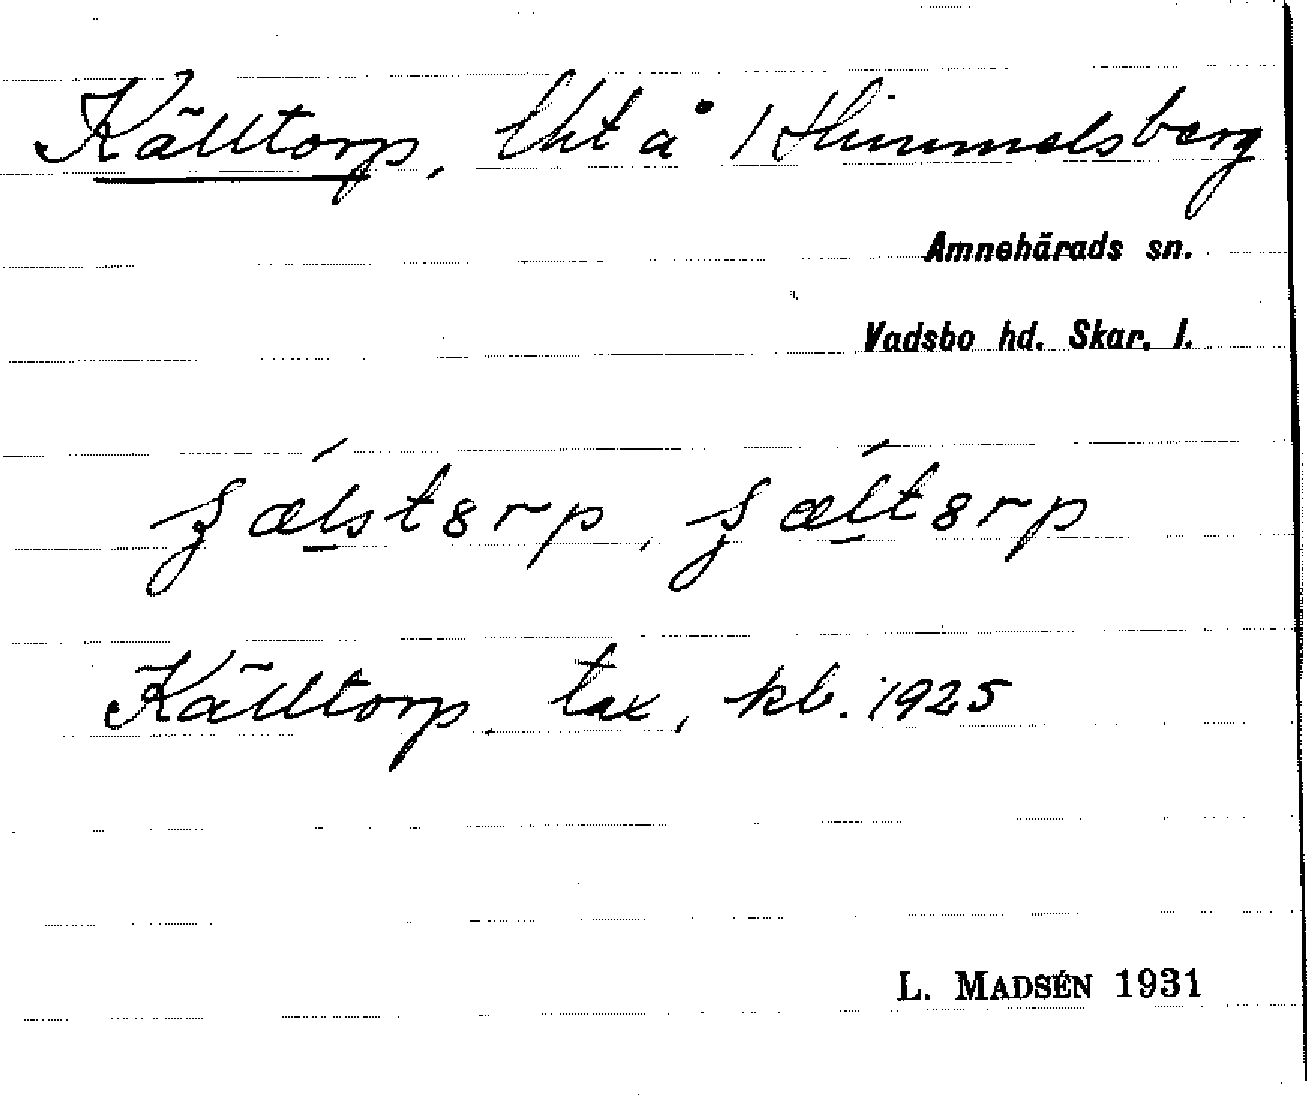 Källtorp, lht å 1 Himmelsberg
Amnehärads sn.
Vadsbo hd. Skar. l.
Källtorp tax, kb. 1925
L. MADSÉN 1931